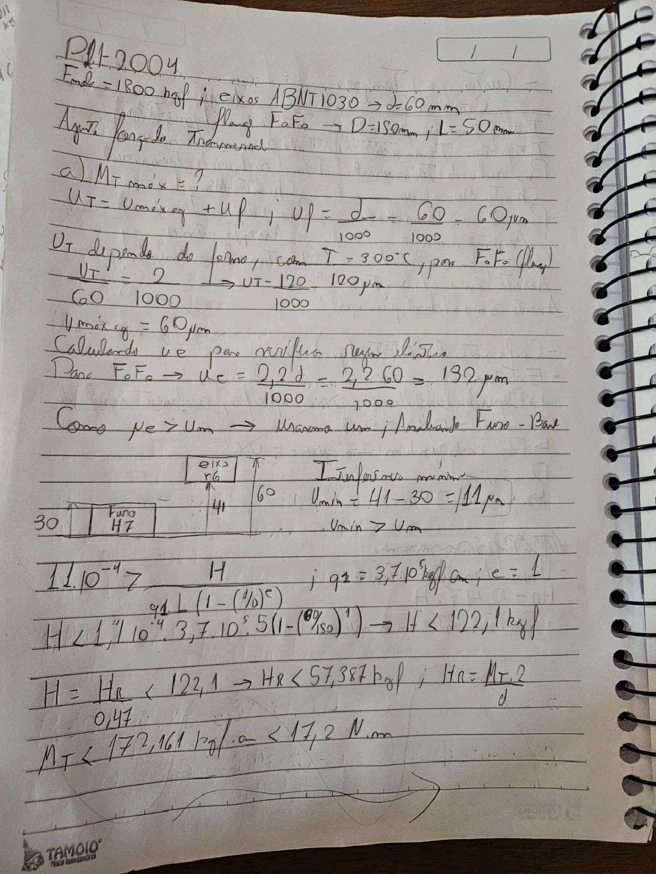 P1-2004
Fmáx = 1800 kgf ; eixos ABNT 1030 → d=60mm
flange FoFo → D=150mm ; L=50mm
Ajuste forçado Transversal
a) MT máx = ?
UT = Umáx eq + Up ; Up = d/1000 = 60/1000 = 60μm
UT depende do forno, com T = 300°C, para FoFo (flange)
UT/60 = 2/1000 → UT = 120/1000 120μm
Umáx eq = 60μm
Calculando ue para verificar regime elástico
Para FoFo → ue = 2,2d/1000 = 2,2 60/1000 = 132 μm
Como μe > Um → usaremos um ; Analisando Furo-Base
eixo
r6
60
41
Furo
H7
30
Interferência mínima
Umin = 41-30 = 11μm
Umin > Um
11.10⁻⁴ > H / q1 L (1-(d/D)^e) ; q1 = 3,7.10⁵ kgf/cm ; e = 1
H < 1,1 10⁻⁴. 3,7.10⁵. 5(1-(60/150)¹) → H < 122,1 kgf
H = HR/0,47 < 122,1 → HR < 57,387 kgf ; HR = MT.2/d
MT < 172,161 kgf.cm < 17,2 N.m
TAMOIO